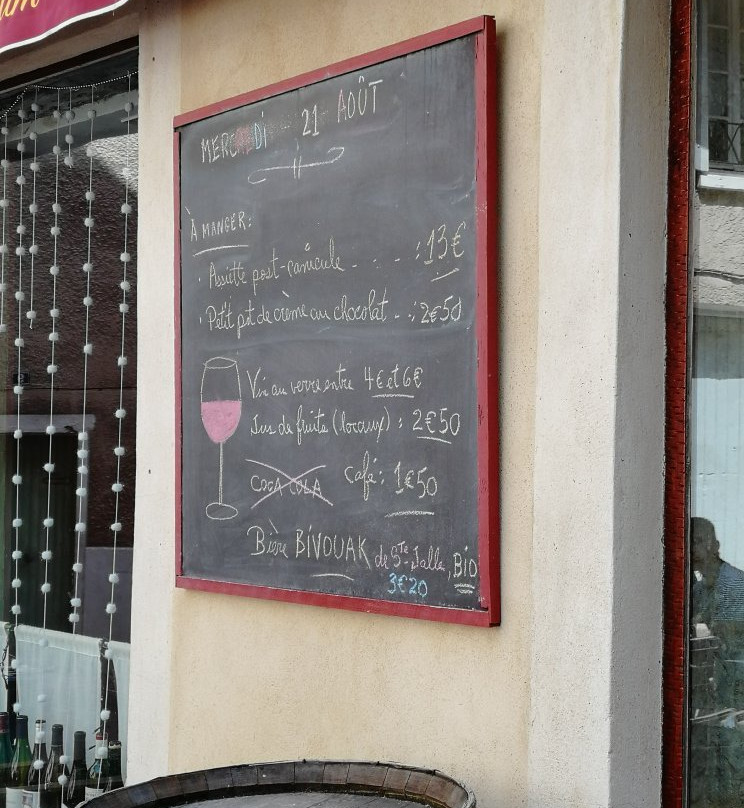 MERCREDI 21 AOÛT
À MANGER:
Assiette post-canicule - - - : 13€
Petit pot de crème au chocolat - : 2€50
Vin au verre entre 4€ et 6€
Jus de fruits (locaux) : 2€50
COCA COLA Café: 1€50
Bière BIVOUAK de Ste Jalle, BIO
3€20